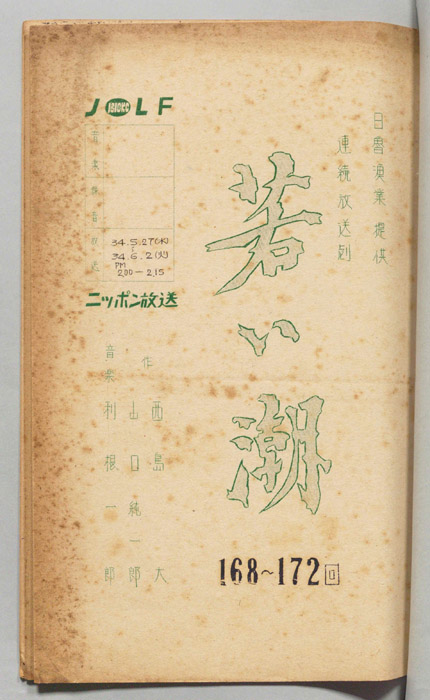 日魯漁業提供
連続放送劇
若い潮
168~172回
JOLF
1310KC
34.5.27(水)
~
34.6.2(火)
PM
2.00-2.15
ニッポン放送
作
西島大
山口純一郎
音楽 利根一郎